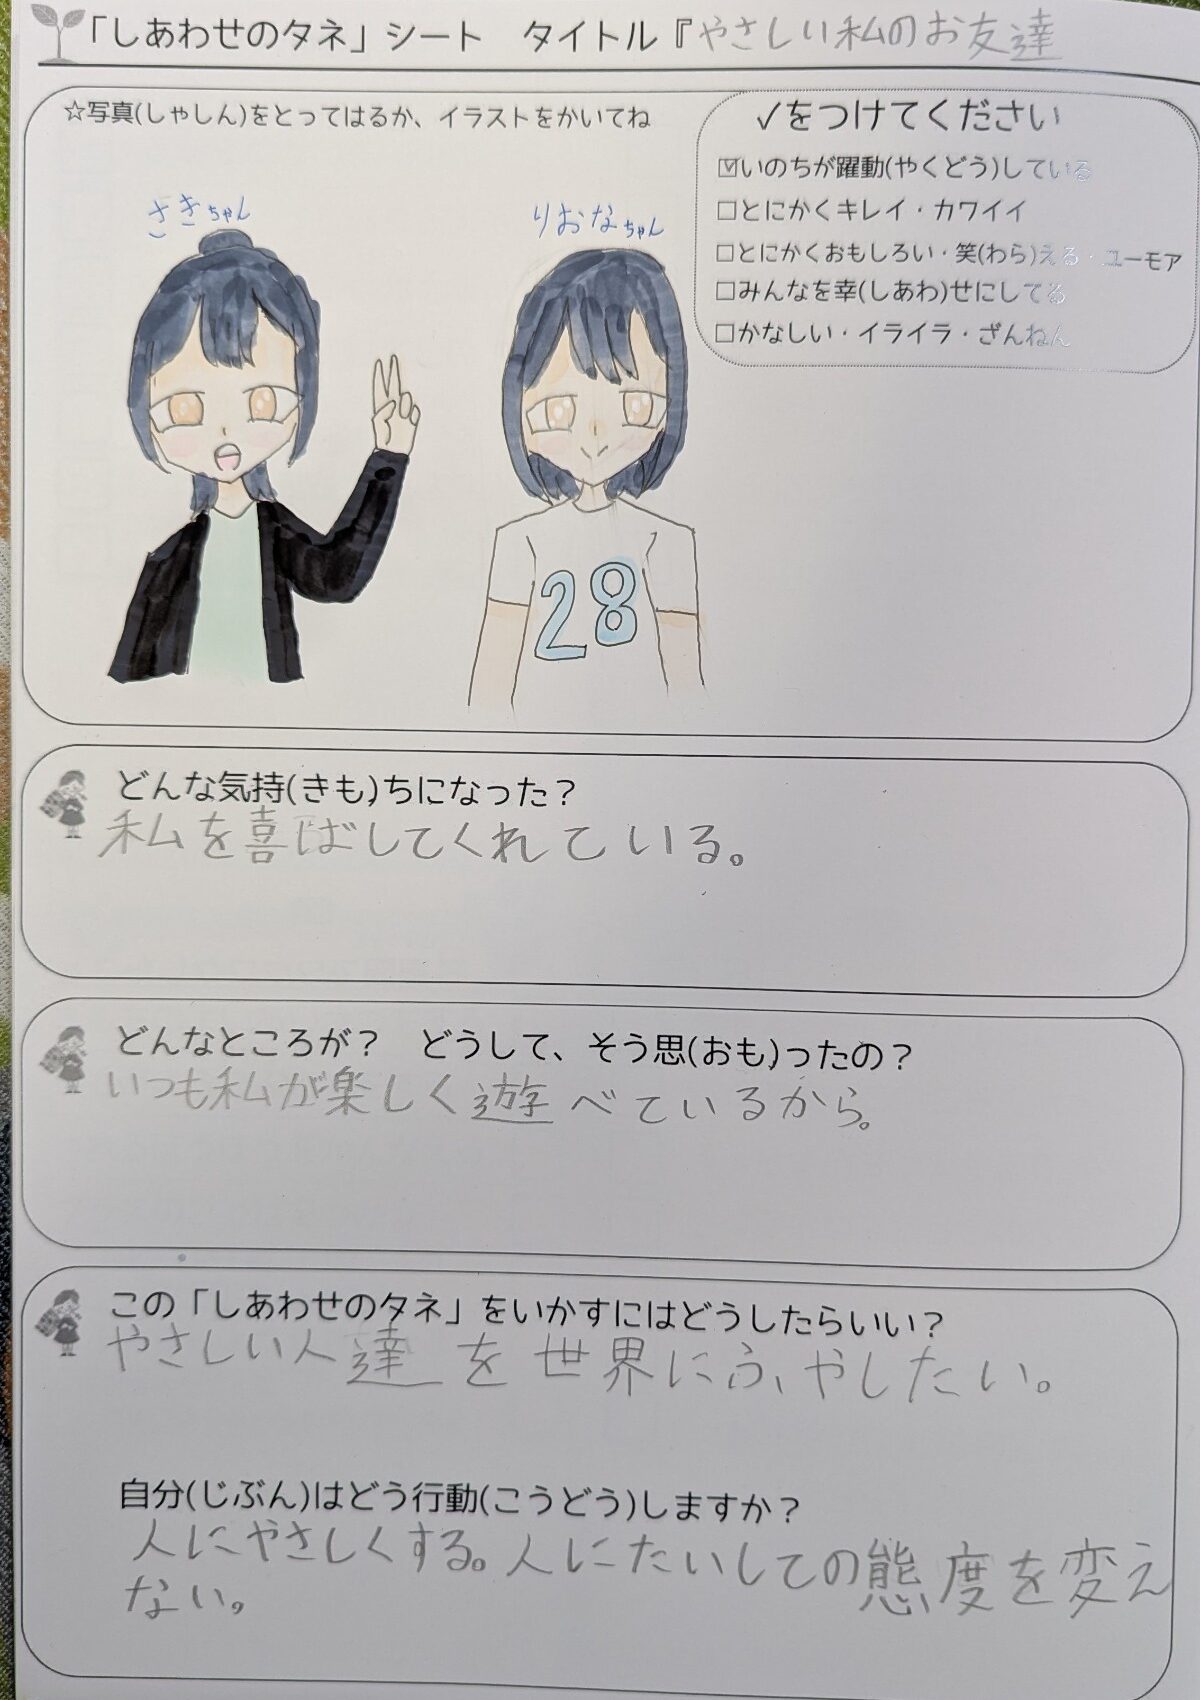 「しあわせのタネ」シート　タイトル『やさしい私のお友達
☆写真(しゃしん)をとってはるか、イラストをかいてね
✓をつけてください
☑いのちが躍動(やくどう)している
□とにかくキレイ・カワイイ
□とにかくおもしろい・笑(わら)える・ユーモア
□みんなを幸(しあわ)せにしてる
□かなしい・イライラ・ざんねん
さきちゃん
りおなちゃん
28
どんな気持(きも)ちになった？
私を喜ばしてくれている。
どんなところが？　どうして、そう思(おも)ったの？
いつも私が楽しく遊べているから。
この「しあわせのタネ」をいかすにはどうしたらいい？
やさしい人達を世界にふやしたい。
自分(じぶん)はどう行動(こうどう)しますか？
人にやさしくする。人にたいしての態度を変え
ない。